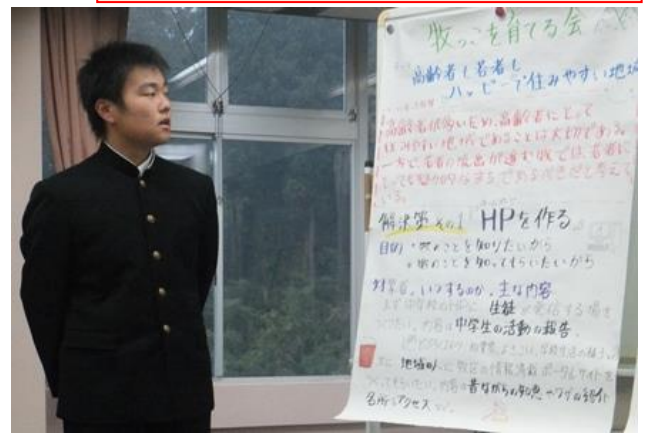 牧っこを育てる会
高齢者も若者も
ハッピーで住みやすい地域
高齢者が多いため、高齢者にとって
住みやすい地域であることは大切である。
一方で、若者の流出が進む牧では、若者に
とっても魅力的な
であるべきだと考えて
いる。
解決策 その1 HPを作る
目的 ・牧のことを知りたいから
・牧のことを知ってもらいたいから
対象者、いつするのか、主な内容
まず中学校のHPに 生徒が発信する場を
つくりたい。内容は中学生の活動の報告。
地域の
牧区の情報満載 ポータルサイトを
つくってもらいたい。内容は昔ながらの知恵
の紹介
名所 アクセス